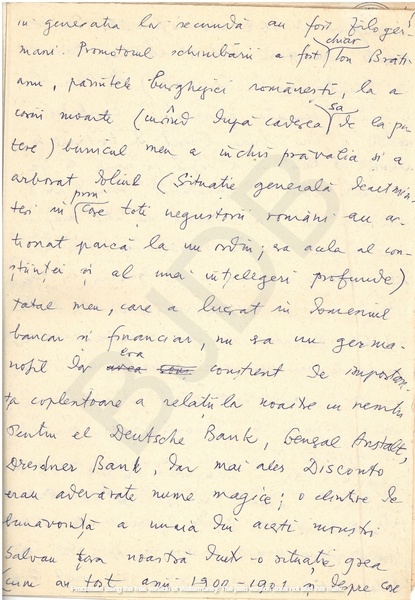 in generatia la secundă au fost filoger-
mani. Promotorul schimbării a fost chiar Ion Brăti
anu, părintele burgheziei românești, la a
cărui moarte (curînd după caderea sa de la pu
tere) bunicul meu a închis prăvalia și a
arborat doliu (Situatie generală
în care toți negustorii români au ac-
ționat parcă la un ordin; era acela al con-
științei și al unei înțelegeri profunde)
tatăl meu, care a lucrat în domeniul
bancar și financiar, nu era un germa-
nofil dar era conștient de importan-
ța copleșitoare a relațiilor noastre cu nemții
Pentru el Deutsche Bank,
Dresdner Bank, dar mai ales Disconto
erau adevărate nume magice; o clintire de
bunăvoință a unuia din acești monștri
salvau țara noastră dintr-o situație grea
(cum au fost anii 1900-1901 și despre care